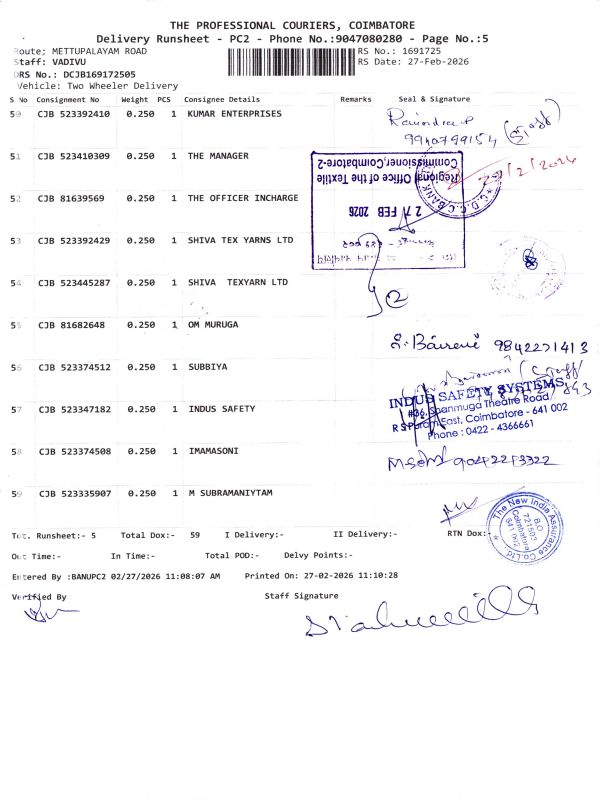 THE PROFESSIONAL COURIERS, COIMBATORE
Delivery Runsheet - PC2 - Phone No.:9047080280 - Page No.:5
Route; METTUPALAYAM ROAD RS No.: 1691725
Staff: VADIVU RS Date: 27-Feb-2026
DRS No.: DCJB169172505
Vehicle: Two Wheeler Delivery
S No Consignment No Weight PCS Consignee Details Remarks Seal & Signature
50 CJB 523392410 0.250 1 KUMAR ENTERPRISES
9940799154 (Staff)
51 CJB 523410309 0.250 1 THE MANAGER
Regional Office of the Textile
Commissioner, Coimbatore-2
27 FEB 2026
C.D.C.C.BANK
52 CJB 81639569 0.250 1 THE OFFICER INCHARGE
53 CJB 523392429 0.250 1 SHIVA TEX YARNS LTD
54 CJB 523445287 0.250 1 SHIVA TEXYARN LTD
2
55 CJB 81682648 0.250 1 OM MURUGA
9842271413
56 CJB 523374512 0.250 1 SUBBIYA
57 CJB 523347182 0.250 1 INDUS SAFETY
INDUS SAFETY SYSTEMS
#36, Shanmuga Theatre Road
R S Puram East, Coimbatore - 641 002
Phone : 0422 - 4366661
58 CJB 523374508 0.250 1 IMAMASONI
59 CJB 523335907 0.250 1 M SUBRAMANIYTAM
The New India Assurance Co.Ltd.
B.O
721503
Coimbatore
641 002
Tot. Runsheet:- 5 Total Dox:- 59 I Delivery:- II Delivery:- RTN Dox:-
Out Time:- In Time:- Total POD:- Delvy Points:-
Entered By :BANUPC2 02/27/2026 11:08:07 AM Printed On: 27-02-2026 11:10:28
Verified By Staff Signature